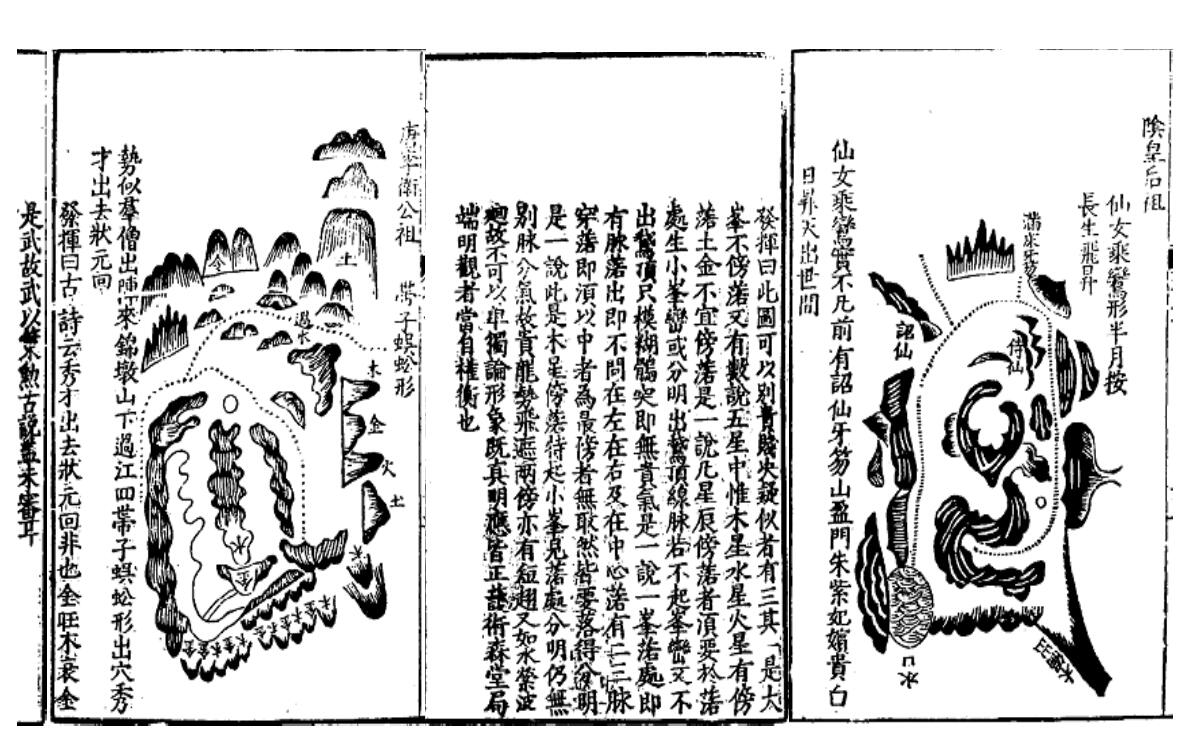 陰皇后祖
仙女乘鸞形半月按
長生飛昇
滿床牙笏
詔仙
侍仙
水口
水纏玄武
仙女乘鸞實不凡前有詔仙牙笏山盈門朱紫妃嬪貴白
日昇天出世間
發揮曰此圖可以別貴賤決疑似者有三其一是太
峯不傍落又有數說五星中惟木星水星火星有傍
落土金不宜傍落是一說凡星辰傍落者須要於落
處生小峯巒或分明出鵞頂線脉若不起峯巒又不
出鵞頂只模糊鶻突即無貴氣是一說一峯落處即
有脉落出即不問在左在右及在中心落有二三脉
穿落即須以中者為最傍者無取然皆要落得分明
是一說此是木星傍落待起小峯見落處分明仍無
別脉分氣故貴龍勢飛遮兩傍亦有短趐又如水縈波
廻故不可以單獨論形象既真明應皆正護術森堂局
端明觀者當自權衡也
唐李衛公祖
帶子蜈蚣形
土
金
過水
木
金
火
土
水
金
勢似羣僧出陣來錦墩山下過江四帶子蜈蚣形出穴秀
才出去狀元回
發揮曰古詩云秀才出去狀元回非也金旺木衰金
是武故武以無木勲古說蓋未審耳